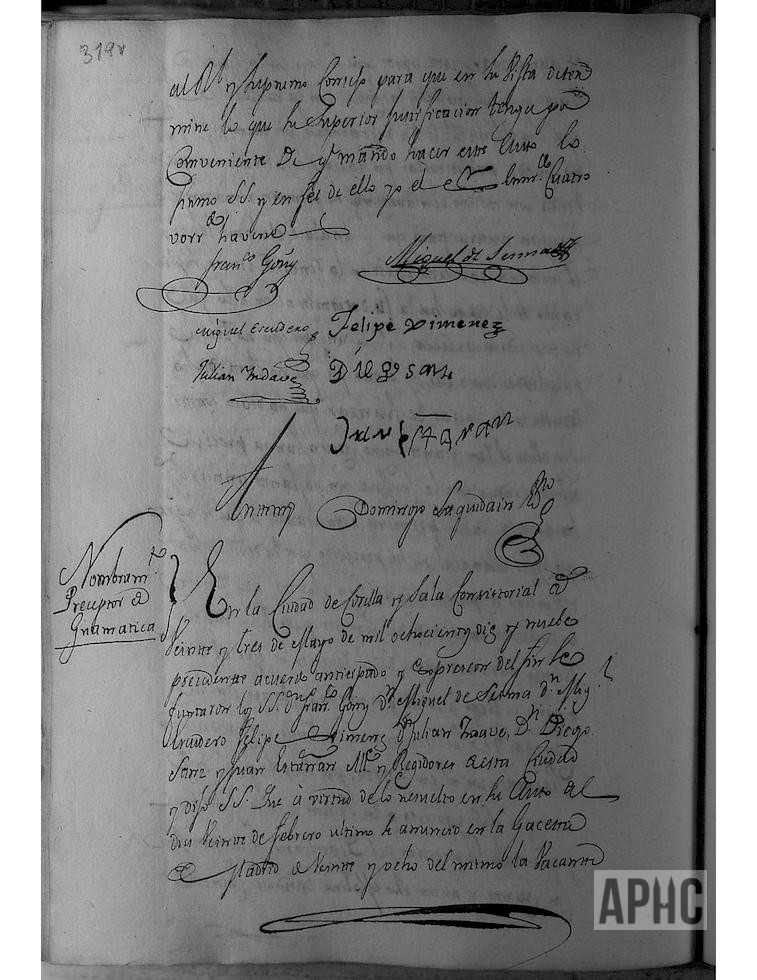 319v
al Rl y Supremo Consejo para que en su Vista deter
mine lo que su Superior Justificacion tenga por
Conveniente De qe mandó hacer este Auto lo
firmo SS. y en feé de ello yo el Cuatro
vorrdo havine
Franco Goñy
Miguel de Sesma
Miguel Escudero
Felipe Ximenez
Julian Yndave
Diego Sanz
Juan Estaran
Antemy Domingo Saguidain Sno
Nombramto
Preceptor de
Gramatica
En la Ciudad de Corella y Sala Consistorial de
Veinte y tres de Mayo de mil ochocientos diez y nuebe
precidente acuerdo anticipado y expresion del fin se
juntaron los SS. Dn Franco Goñy Dn Miguel de Sesma Dn Migl
Escudero Felipe Ximenez Dn Julian Ynave, Dn Diego
Sanz y Juan Estarran Alle y Regidores de esta Ciudad
y dijo SS. Que á virtud de lo resuelto en su Auto del
dia Veinte de febrero ultimo se anuncio en la Gaceta
de Madrid de Veinte y ocho del mismo la Vacante
APHC